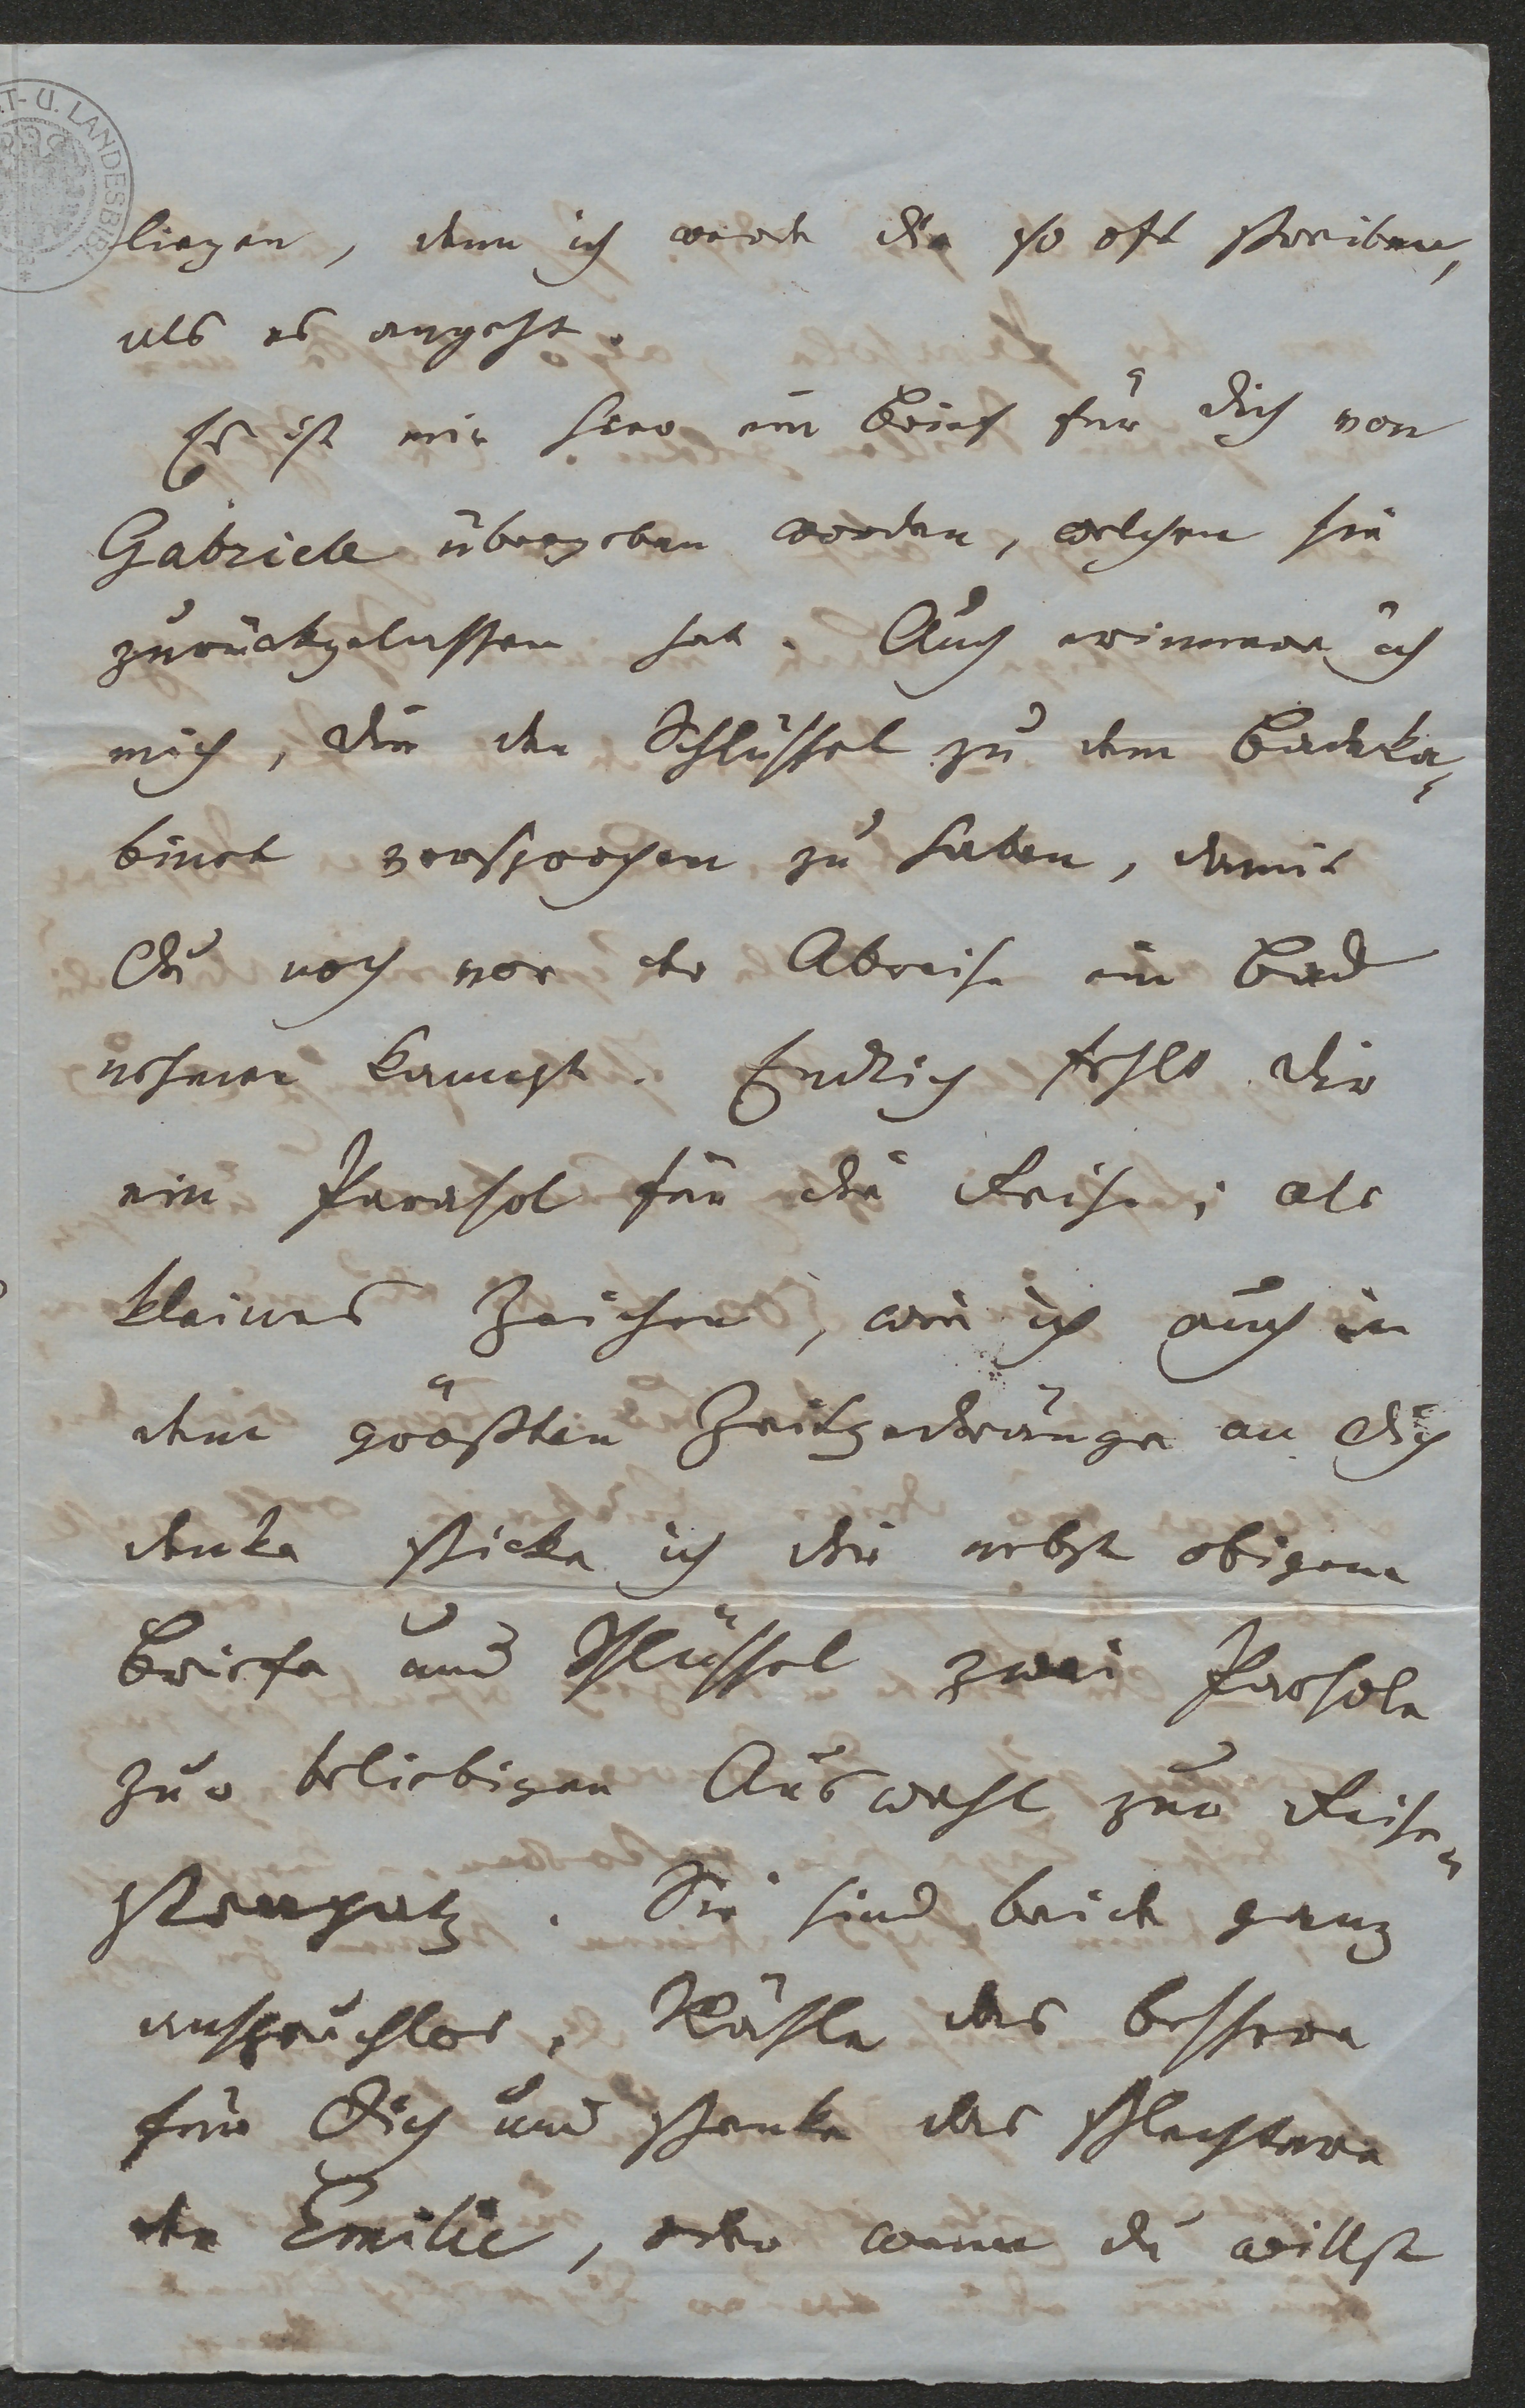 T- U. LANDESBIBL
liegen, denn ich werde dir so oft schreiben,
als es angeht.
Es ist mir hier ein Brief für dich von
Gabriele übergeben worden, welchen sie
zurückgelassen hat. Auch erinnere ich
mich, dir den Schlüssel zu dem Badeka-
binet versprochen zu haben, damit
Du noch vor der Abreise ein Bad
nehmen kannst. Endlich fehlt dir
ein Parasol für die Reise; als
kleines Zeichen, wie ich auch in
dem größten Zeitgedränge an dich
denke schicke ich dir nebst obigem
Briefe und Schlüssel zwei Parsole
zur beliebigen Auswahl zur Reise-
. Sie sind beide ganz
anspruchlos. Wähle das bessere
für Dich und schenke das schlechtere
der Emilie, oder wenn du willst